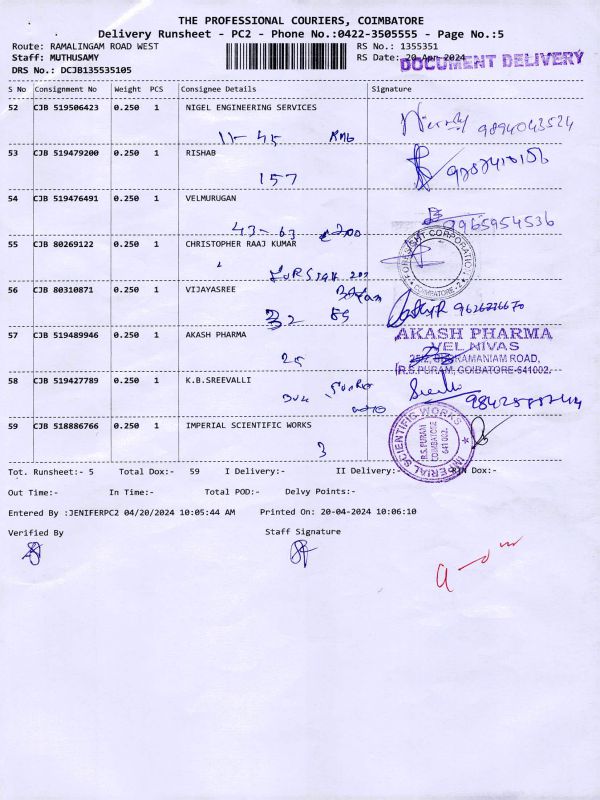 THE PROFESSIONAL COURIERS, COIMBATORE
Delivery Runsheet - PC2 - Phone No.:0422-3505555 - Page No.:5
Route: RAMALINGAM ROAD WEST RS No.: 1355351
Staff: MUTHUSAMY RS Date: 20-Apr-2024
DOCUMENT DELIVERY
DRS No.: DCJB135535105
S No Consignment No Weight PCS Consignee Details Signature
52 CJB 519506423 0.250 1 NIGEL ENGINEERING SERVICES
11-45 9894043524
53 CJB 519479200 0.250 1 RISHAB
157
54 CJB 519476491 0.250 1 VELMURUGAN
43-63 9965954536
55 CJB 80269122 0.250 1 CHRISTOPHER RAAJ KUMAR
FORESIGHT CORPORATION
COIMBATORE-2
56 CJB 80310871 0.250 1 VIJAYASREE
32
57 CJB 519489946 0.250 1 AKASH PHARMA
AKASH PHARMA
VEL NIVAS
25/2, SUBRAMANIAM ROAD,
R.S.PURAM, COIBATORE-641002.
25
58 CJB 519427789 0.250 1 K.B.SREEVALLI
59 CJB 518886766 0.250 1 IMPERIAL SCIENTIFIC WORKS
3
IMPERIAL SCIENTIFIC WORKS
R.S.PURAM
COIMBATORE
641 002.
Tot. Runsheet:- 5 Total Dox:- 59 I Delivery:- II Delivery:- RTN Dox:-
Out Time:- In Time:- Total POD:- Delvy Points:-
Entered By :JENIFERPC2 04/20/2024 10:05:44 AM Printed On: 20-04-2024 10:06:10
Verified By Staff Signature